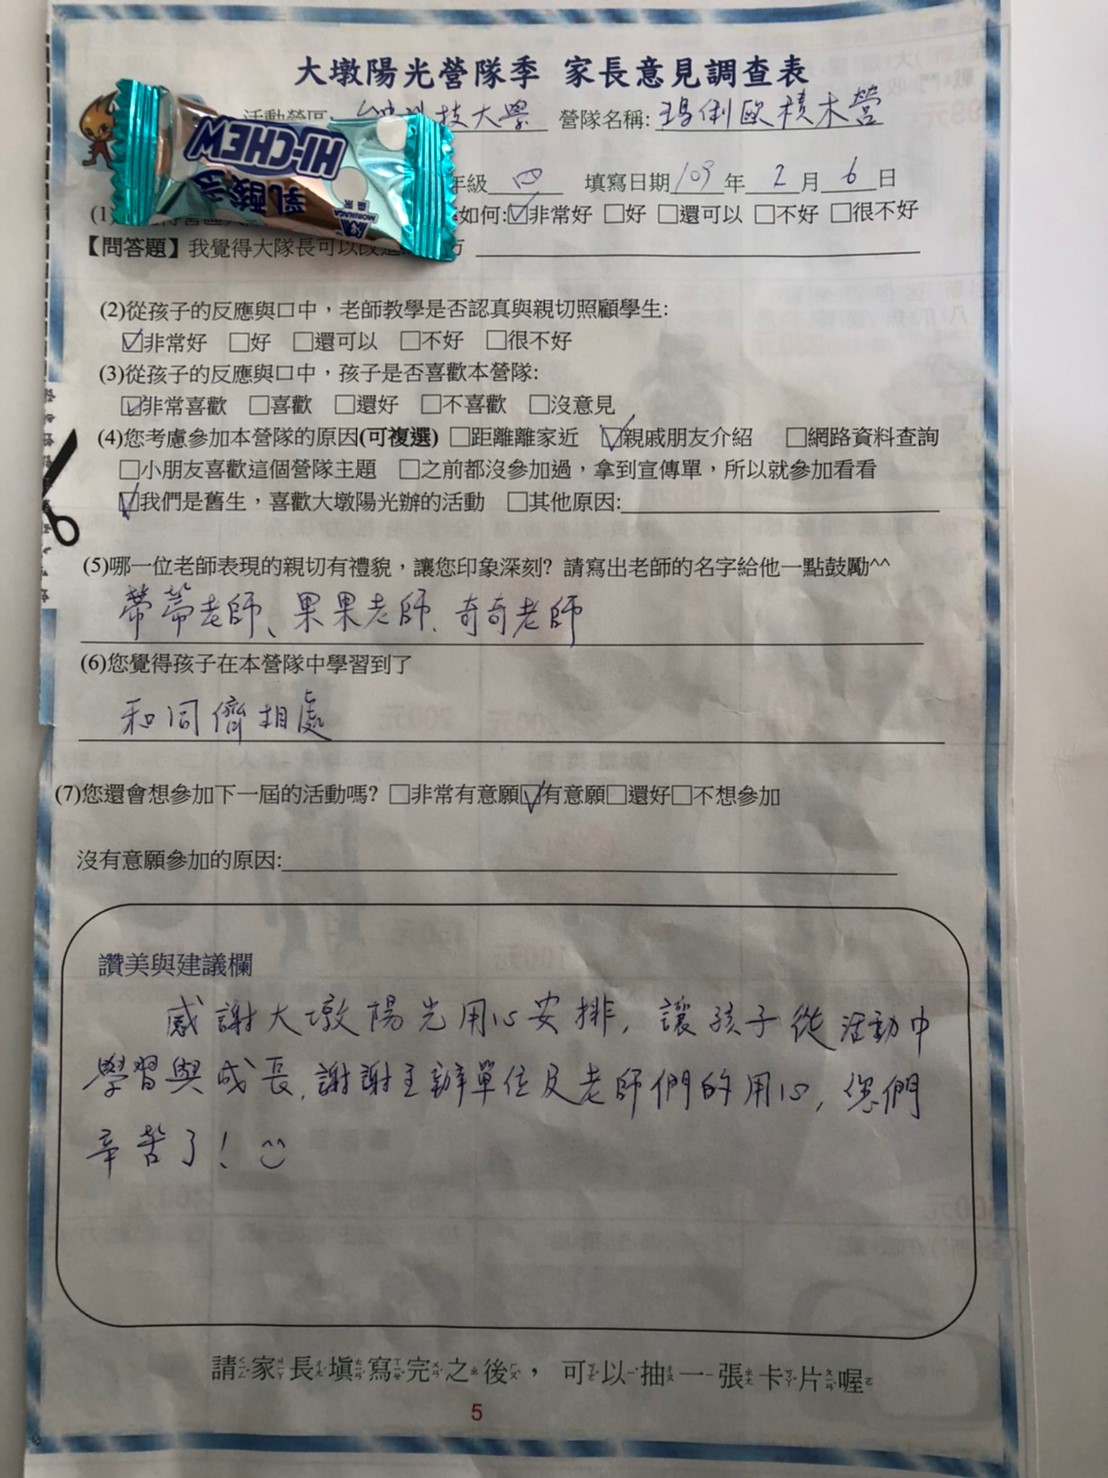 大墩陽光營隊季 家長意見調查表
活動營區: 科技大學 營隊名稱: 瑪俐歐積木營
HI-CHEW
乳酸多
森永
MORINAGA
年級 四 填寫日期 109 年 2 月 6 日
(1) 如何:☑非常好 □好 □還可以 □不好 □很不好
【問答題】我覺得大隊長可以改進
(2)從孩子的反應與口中,老師教學是否認真與親切照顧學生:
☑非常好 □好 □還可以 □不好 □很不好
(3)從孩子的反應與口中,孩子是否喜歡本營隊:
☑非常喜歡 □喜歡 □還好 □不喜歡 □沒意見
(4)您考慮參加本營隊的原因(可複選) □距離離家近 ☑親戚朋友介紹 □網路資料查詢
□小朋友喜歡這個營隊主題 □之前都沒參加過,拿到宣傳單,所以就參加看看
☑我們是舊生,喜歡大墩陽光辦的活動 □其他原因:
(5)哪一位老師表現的親切有禮貌,讓您印象深刻? 請寫出老師的名字給他一點鼓勵^^
蒂蒂老師、果果老師、奇奇老師
(6)您覺得孩子在本營隊中學習到了
和同儕相處
(7)您還會想參加下一屆的活動嗎? □非常有意願☑有意願□還好□不想參加
沒有意願參加的原因:
讚美與建議欄
感謝大墩陽光用心安排,讓孩子從活動中
學習與成長,謝謝主辦單位及老師們的用心,您們
辛苦了!
請家長填寫完之後,可以抽一張卡片喔
5